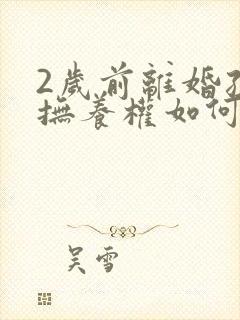 2歲前離婚孩
撫養權如何
吳雪